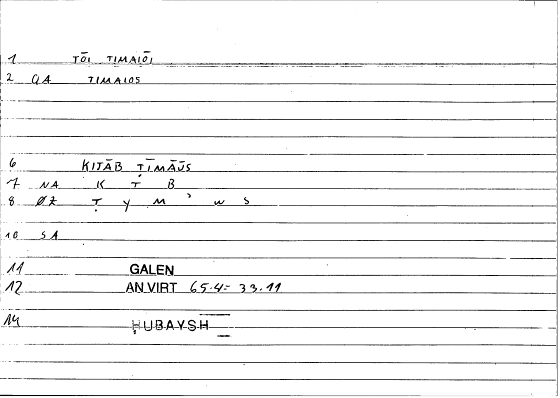 1 TŌI TIMAIŌI
2 QA TIMAIOS
6 KITĀB ṬĪMĀŪS
7 NA K T B
8 ØZ Ṭ Y M ʾ W S
10 SA
11 GALEN
12 AN.VIRT 65.4 = 33.11
14 ḤUBAYSH